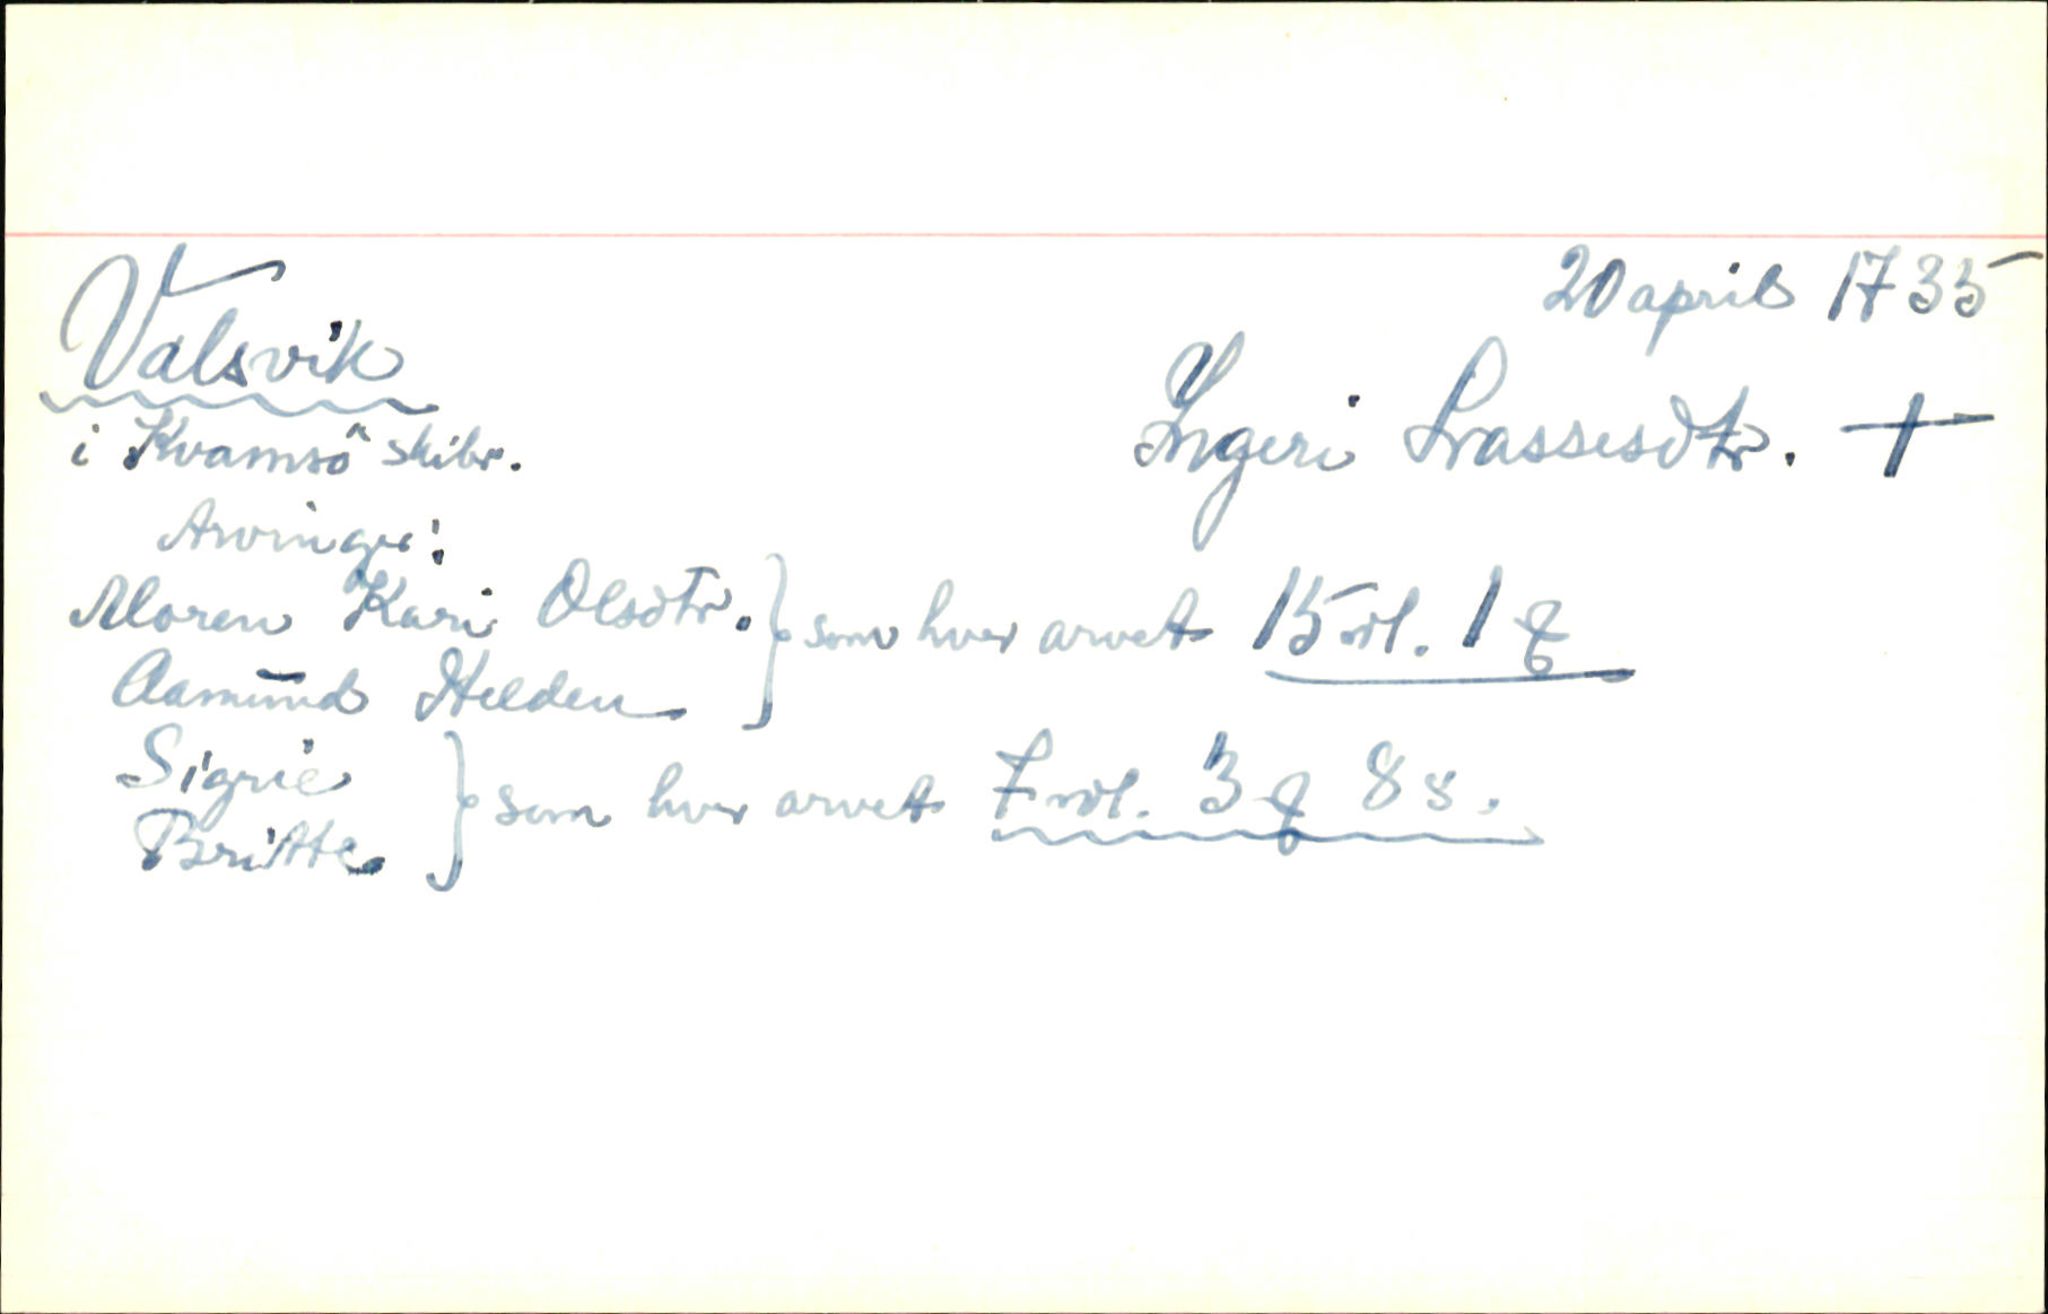 20 april 1735
Valsvik
i Kvamsö skibr.
Ingeri Lassesdtr. +
Arvinger:
Moren Kari Olsdtr.
Aamund Helden
} som hver arvet 15 rdl. 1 q
Sigrie
Britte.
} som hver arvet 7 rdl. 3 q 8 s.